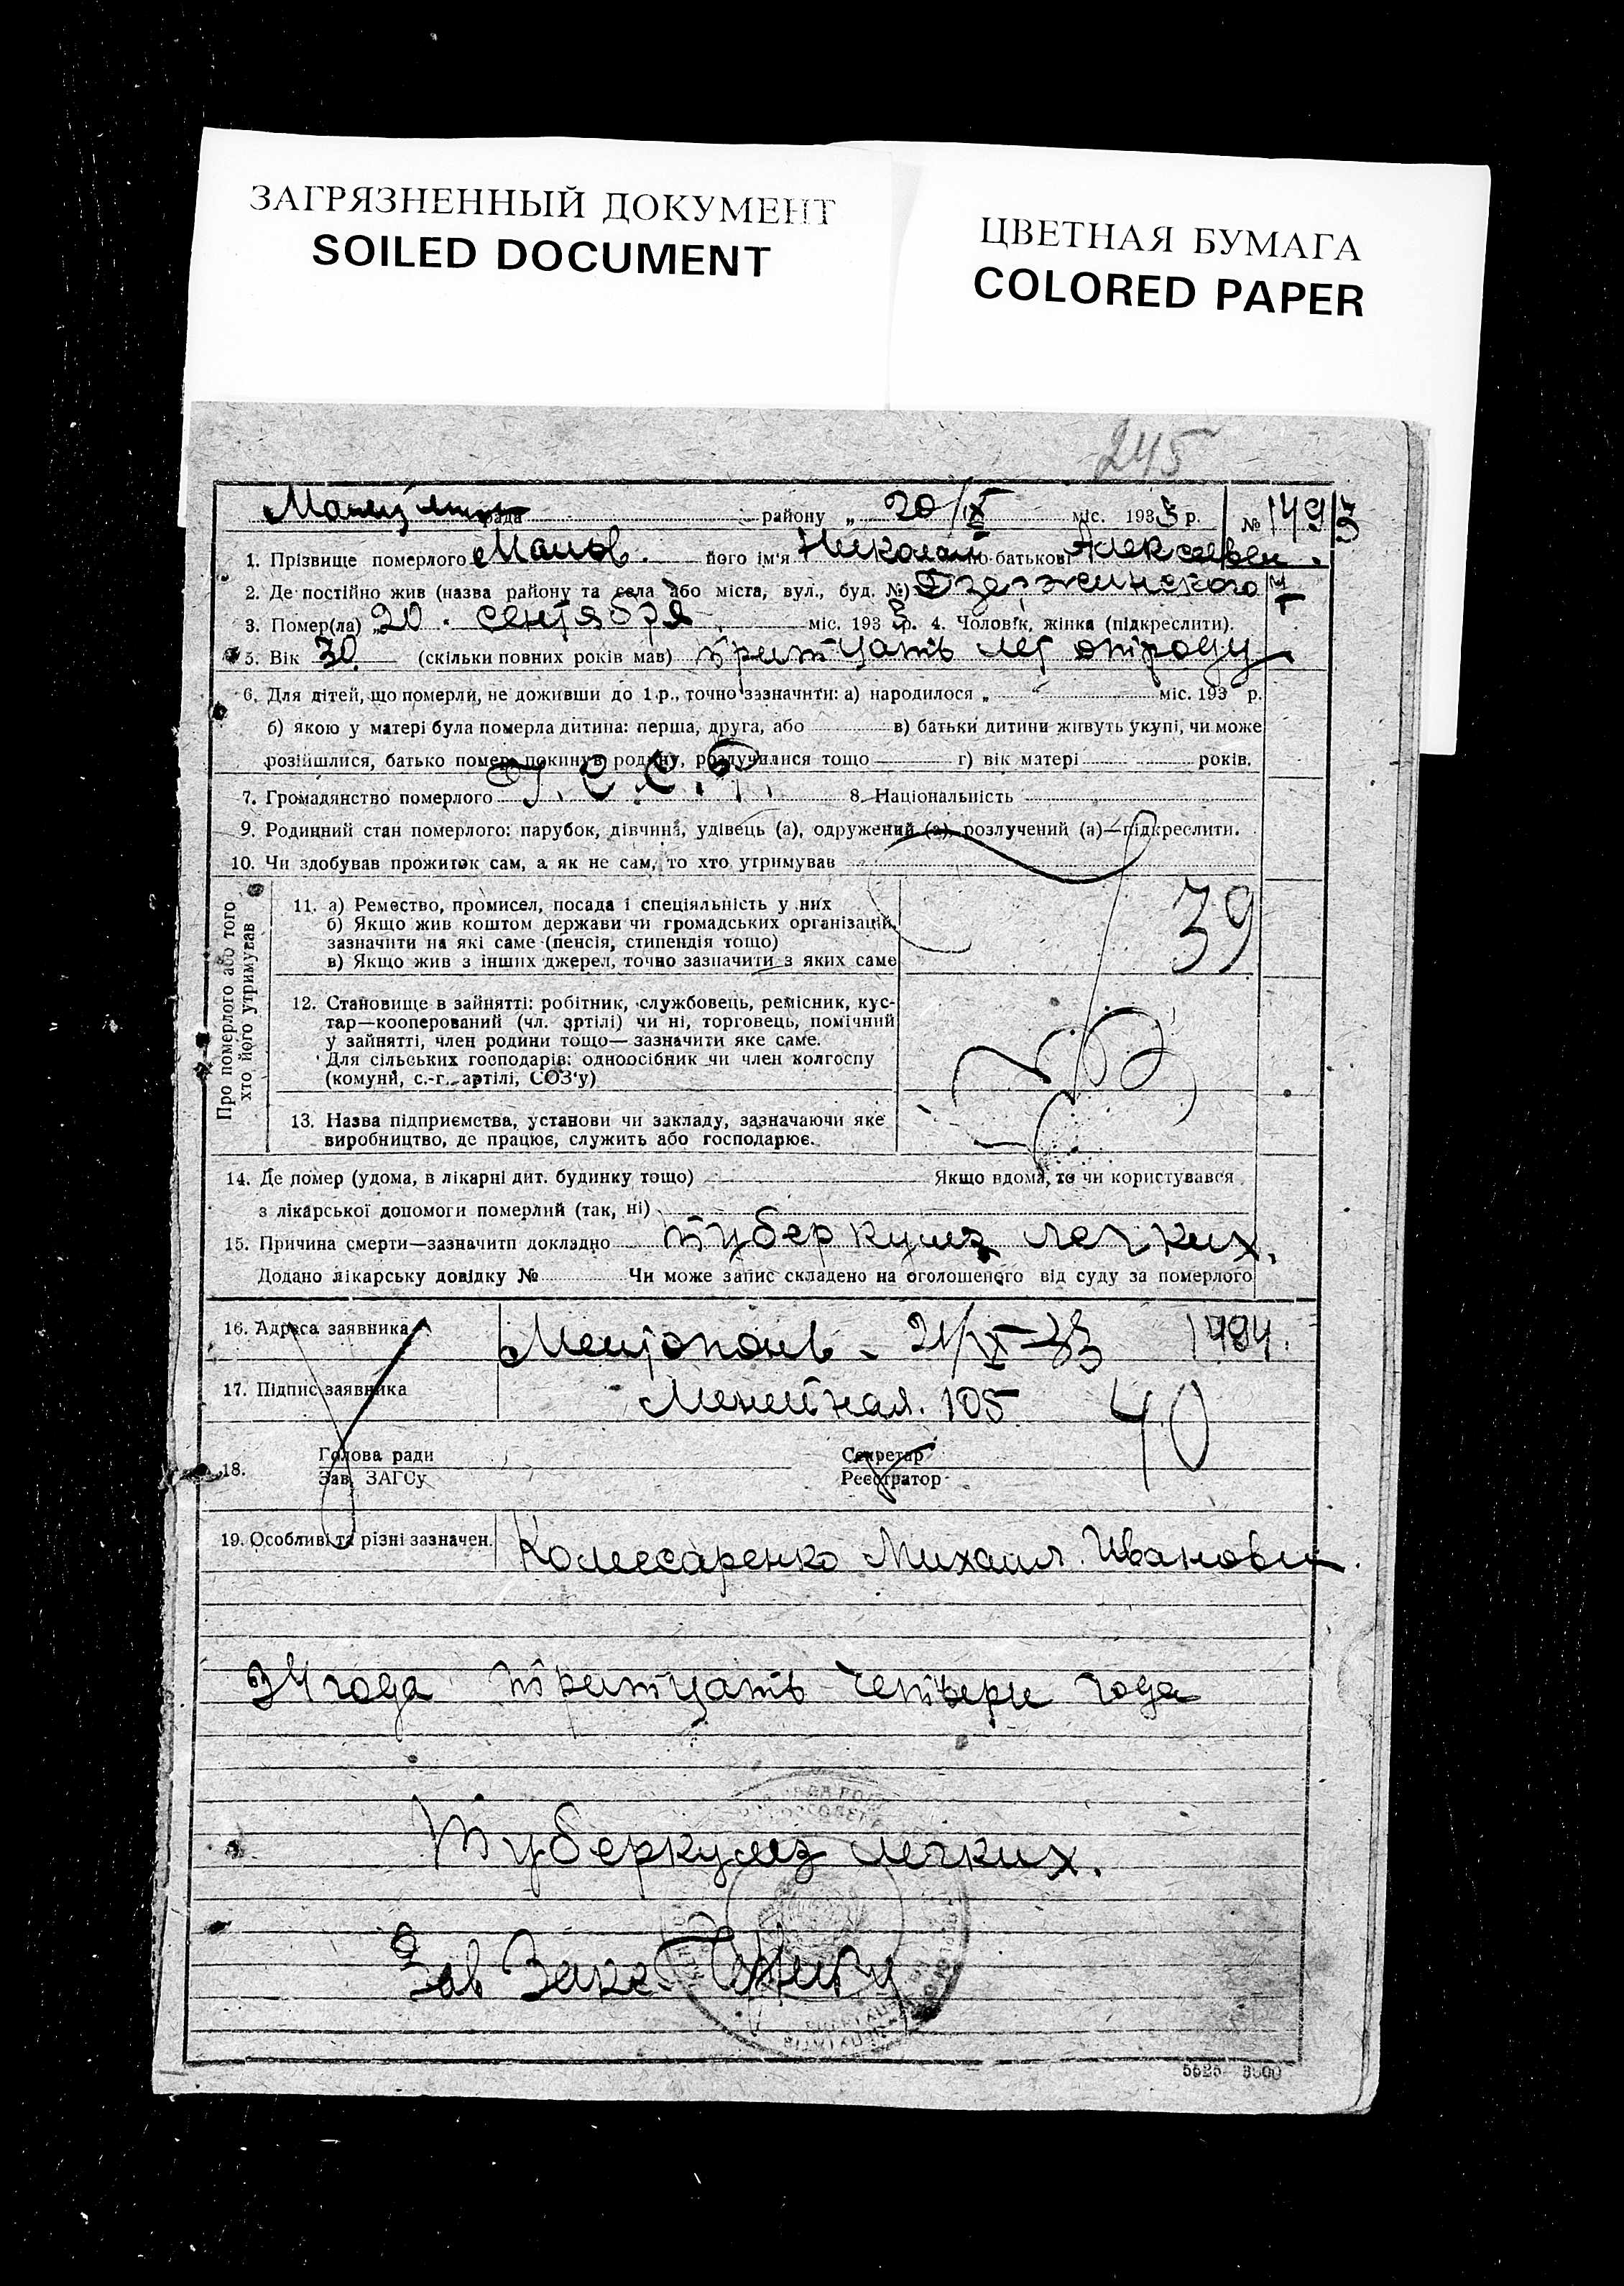 ЗАГРЯЗНЕННЫЙ ДОКУМЕНТ
SOILED DOCUMENT
ЦВЕТНАЯ БУМАГА
COLORED PAPER
245
рада району „ 20/IX міс. 1933 р. № 1493
1. Прізвище померлого його ім'я Николай по-батькові Алексеевич.
2. Де постійно жив (назва району та села або міста, вул., буд. №) Дзержинского 7
3. Помер(ла) „20. сентября міс. 1933 р. 4. Чоловік, жінка (підкреслити).
5. Вік 30 (скільки повних років мав) тритцать лет отроду
6. Для дітей, що померли, не доживши до 1 р., точно зазначити: а) народилося „ “ міс. 193 р.
б) якою у матері була померла дитина: перша, друга, або в) батьки дитини живуть укупі, чи може
розійшлися, батько помер, покинув родину, розлучилися тощо г) вік матері років.
7. Громадянство померлого У.С.С.Р. 8. Національність
9. Родинний стан померлого: парубок, дівчина, удівець (а), одружений (а), розлучений (а)—підкреслити.
10. Чи здобував прожиток сам, а як не сам, то хто утримував
Про померлого або того
хто його утримував
11. а) Ремество, промисел, посада і спеціяльність у них
б) Якщо жив коштом держави чи громадських організацій,
зазначити на які саме (пенсія, стипендія тощо)
в) Якщо жив з інших джерел, точно зазначити з яких саме
39
12. Становище в зайнятті: робітник, службовець, ремісник, кус-
тар—кооперований (чл. артілі) чи ні, торговець, помічний
у зайнятті, член родини тощо—зазначити яке саме.
Для сільських господарів: одноосібник чи член колгоспу
(комуни, с.-г. артілі, СОЗ'у)
13. Назва підприємства, установи чи закладу, зазначаючи яке
виробництво, де працює, служить або господарює.
14. Де помер (удома, в лікарні дит. будинку тощо) Якщо вдома, то чи користувався
з лікарської допомоги померлий (так, ні)
15. Причина смерти—зазначити докладно туберкулез легких.
Додано лікарську довідку № Чи може запис складено на оголошеного від суду за померлого
16. Адреса заявника 21/IX-33 1494.
17. Підпис заявника 105 40
18. Голова ради Секретар
Зав. ЗАГСу Реєстратор
19. Особливі та різні зазначен. Колесаренко Михаил Иванович.
34 года тритцать четвери года
Туберкулез легких.
Зав
5525 3000